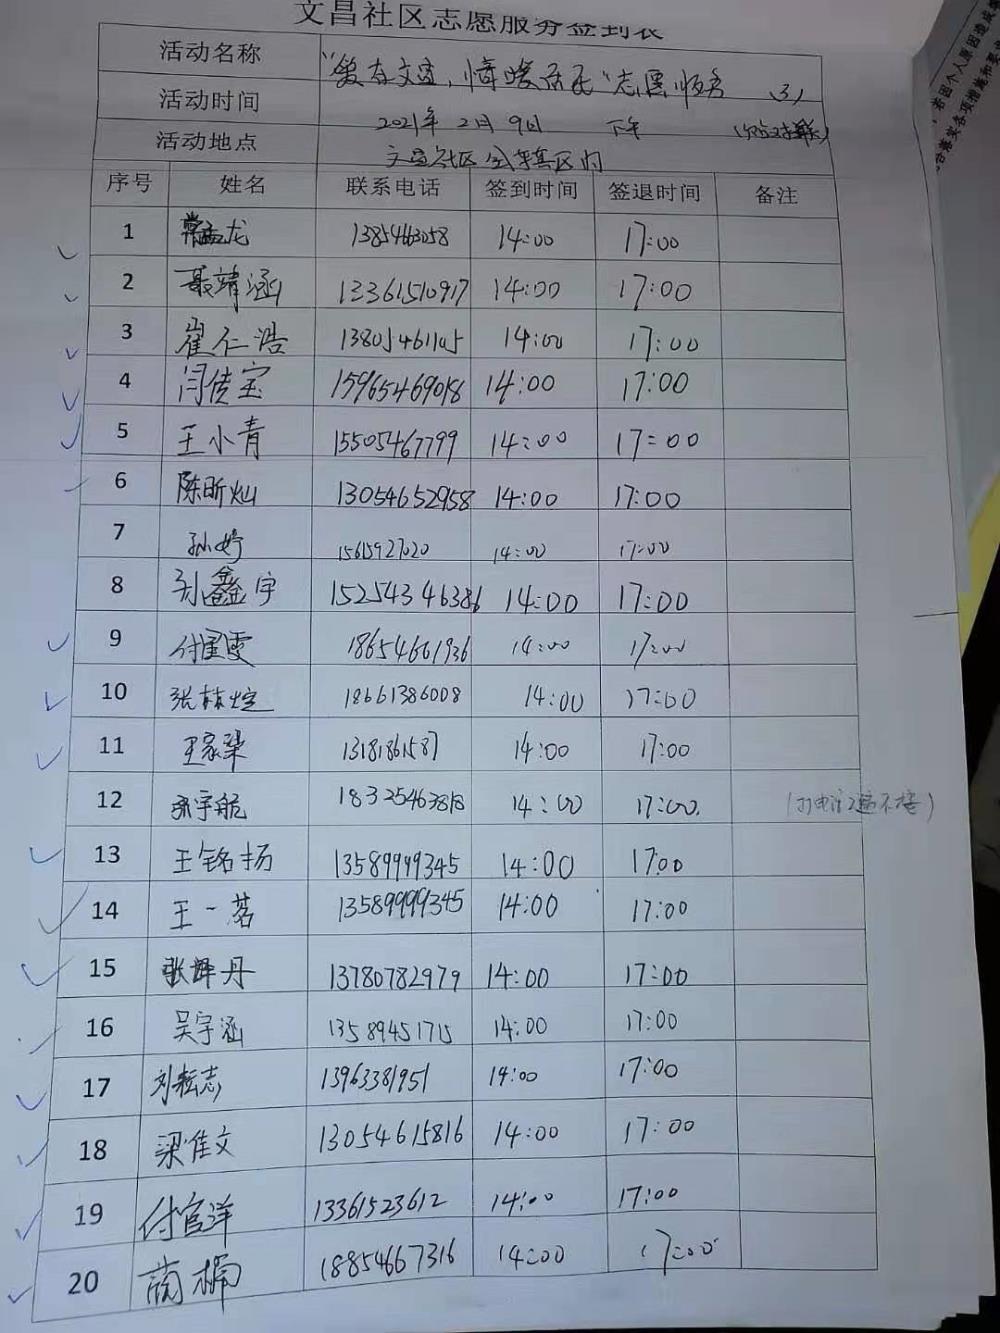 文昌社区志愿服务签到表
活动名称 "爱在文昌,情暖居民"志愿服务 (3)
活动时间 2021年2月9日 下午
活动地点 文昌社区全辖区内
序号 姓名 联系电话 签到时间 签退时间 备注
1 龙 1385463058 14:00 17:00
2 聂靖涵 13361510917 14:00 17:00
3 崔仁浩 13805461105 14:00 17:00
4 闫传宝 15965469018 14:00 17:00
5 王小青 15505467799 14:00 17:00
6 陈昕灿 13054652958 14:00 17:00
7 孙婷 15615927020 14:00 17:00
8 孙鑫宇 15254346386 14:00 17:00
9 付雯 18654661936 14:00 17:00
10 张 18661386008 14:00 17:00
11 王家琪 13181861587 14:00 17:00
12 张宇航 18325463818 14:00 17:00 (打电话2遍不接)
13 王铭扬 13589999345 14:00 17:00
14 王一茗 13589999345 14:00 17:00
15 张烨丹 13780782979 14:00 17:00
16 吴宇涵 13589451715 14:00 17:00
17 刘耘志 13963381951 14:00 17:00
18 梁佳文 13054615816 14:00 17:00
19 付官洋 13361523612 14:00 17:00
20 商楠 18854667316 14:00 17:00